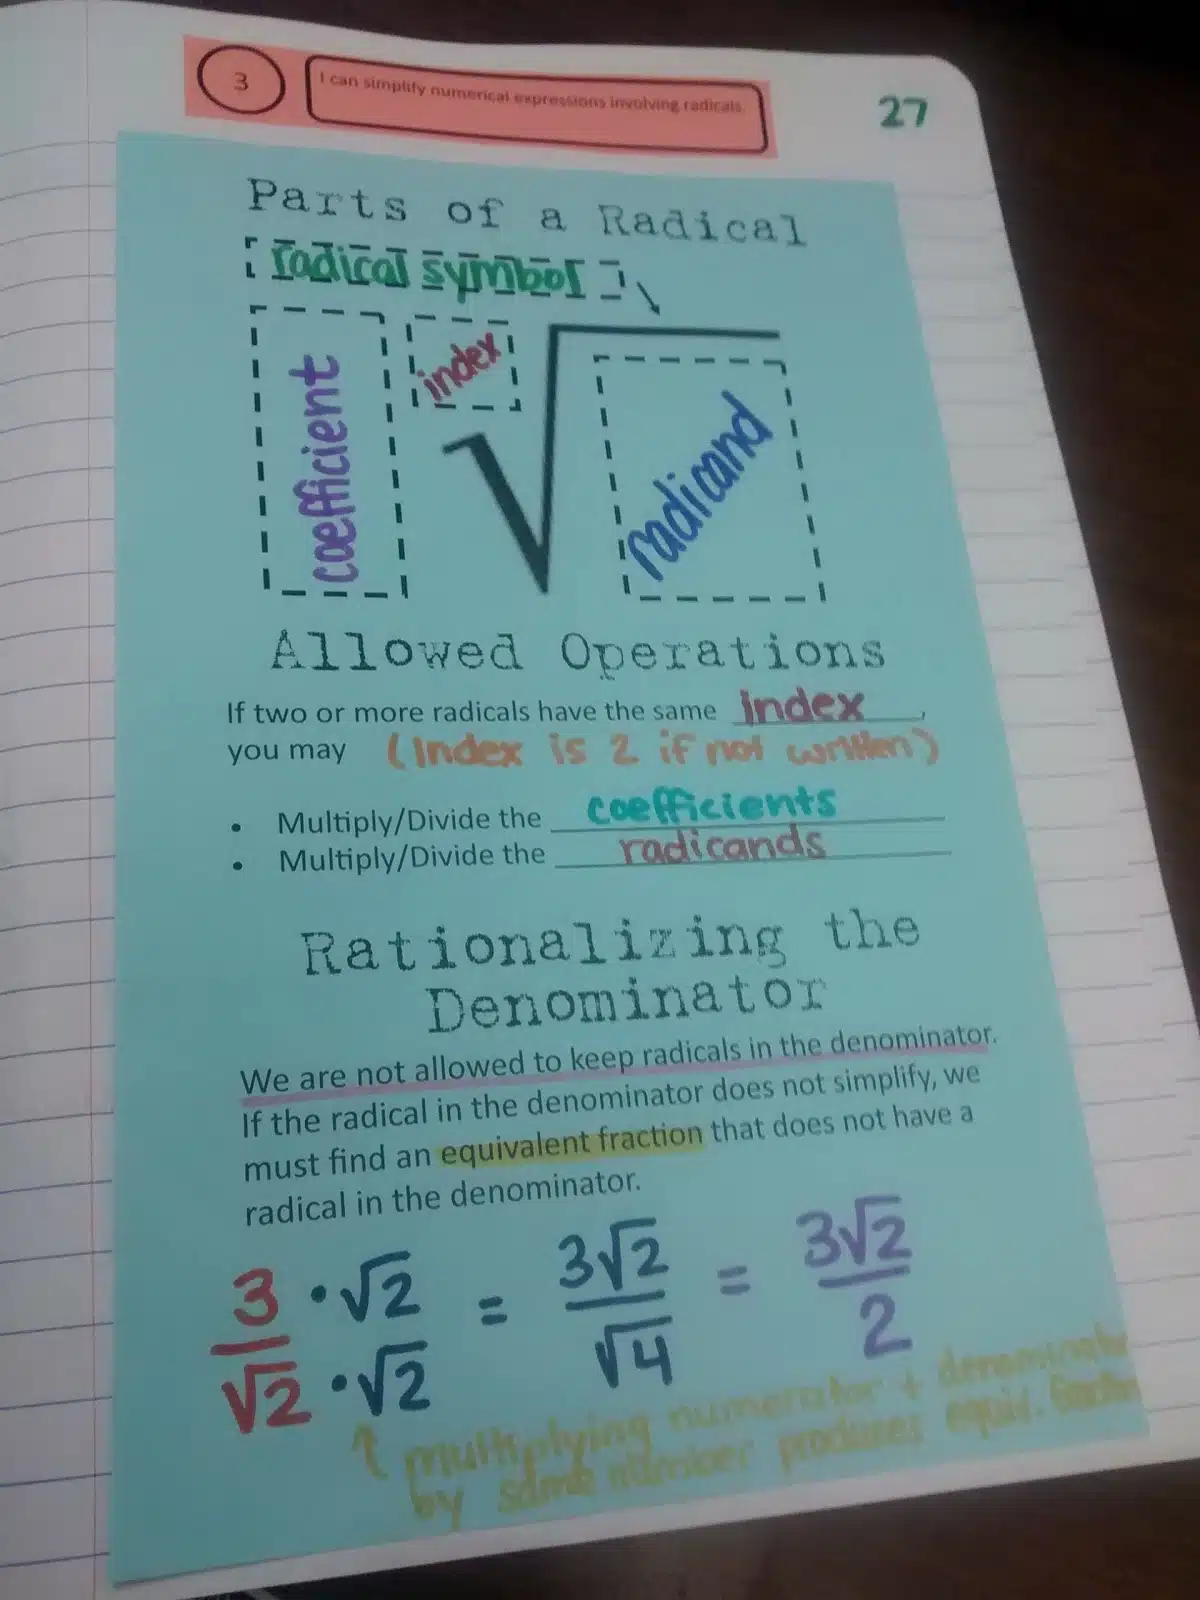 3
I can simplify numerical expressions involving radicals.
27
Parts of a Radical
radical symbol
coefficient
index
radicand
Allowed Operations
If two or more radicals have the same index,
you may (Index is 2 if not written)
• Multiply/Divide the coefficients
• Multiply/Divide the radicands
Rationalizing the
Denominator
We are not allowed to keep radicals in the denominator.
If the radical in the denominator does not simplify, we
must find an equivalent fraction that does not have a
radical in the denominator.
3 · √2 = 3√2 = 3√2
√2 · √2 √4 2
↑ multiplying numerator + denominator
by same number produces equiv. fraction